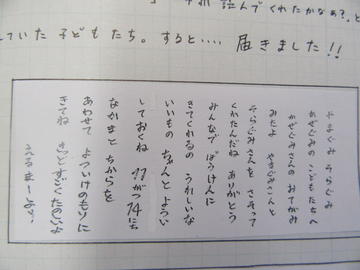 読んでくれたかなぁ?。と
していた子どもたち。すると‥‥ 届きました!!
やまぐみ そらぐみ
かぜぐみの こどもたちへ
かぜぐみさんの おてがみ
みたよ やまぐみさんと
そらぐみさんを さそって
くれたんだね ありがとう
みんなで ぼうけんに
きてくれるの うれしいな
いいもの ちゃんと ようい
しておくね 11がつ14にち
なかまと ちからを
あわせて よういけのもりに
きてね きっと
ぶるまーより